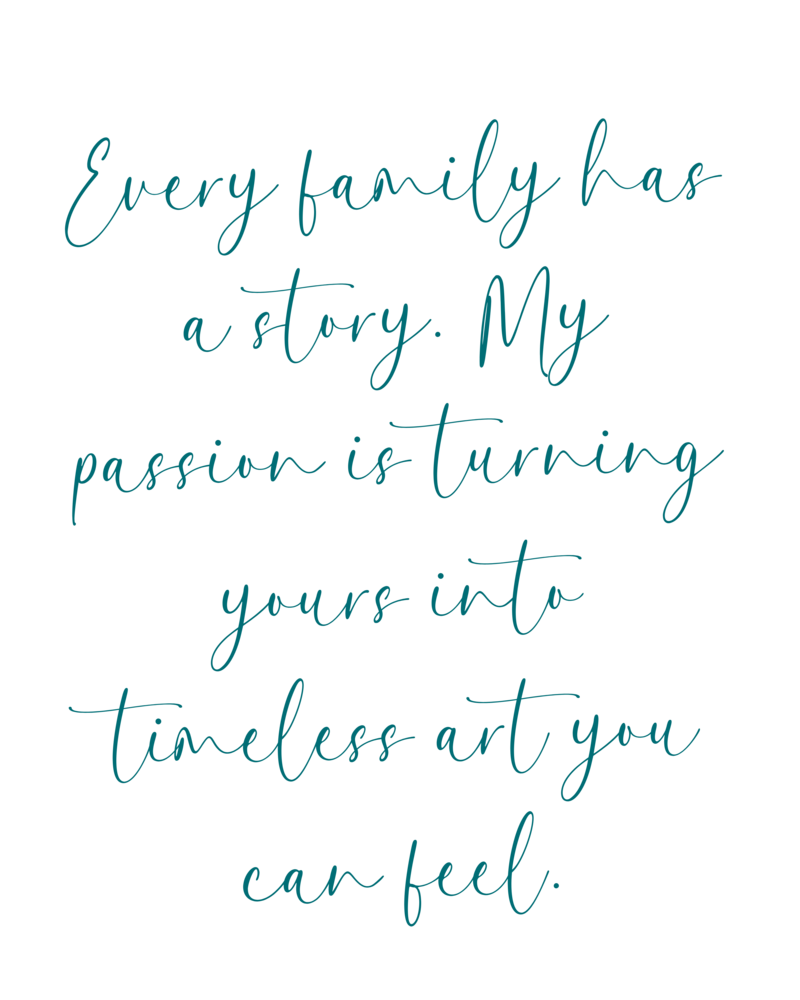 Every family has
a story. My
passion is turning
yours into
timeless art you
can feel.